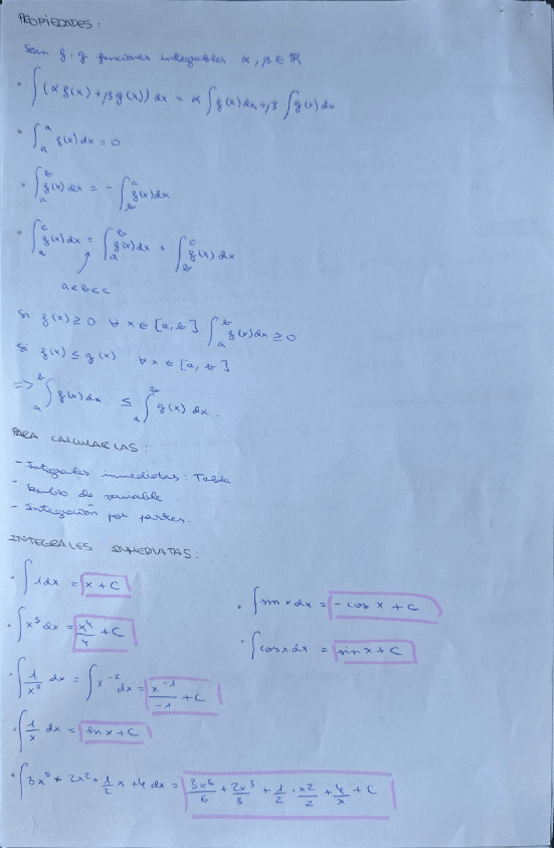 PROPIEDADES:
Sean f, g funciones integrables α, β ∈ ℝ
· ∫(α f(x) + β g(x)) dx = α ∫f(x) dx + β ∫g(x) dx
· ∫_a^a f(x) dx = 0
· ∫_a^b f(x) dx = - ∫_b^a f(x) dx
· ∫_a^c f(x) dx = ∫_a^b f(x) dx + ∫_b^c f(x) dx
a<b<c
Si f(x) ≥ 0 ∀ x ∈ [a, b] ∫_a^b f(x) dx ≥ 0
Si f(x) ≤ g(x) ∀ x ∈ [a, b]
=> ∫_a^b f(x) dx ≤ ∫_a^b g(x) dx.
PARA CALCULARLAS:
- Integrales inmediatas: Tabla
- Cambio de variable
- Integración por partes.
INTEGRALES INMEDIATAS:
· ∫1 dx = x + C
· ∫sin x dx = - cos x + C
· ∫x³ dx = x⁴/4 + C
· ∫cos x dx = sin x + C
· ∫1/x² dx = ∫x⁻² dx = x⁻¹/-1 + C
· ∫1/x dx = ln x + C
· ∫3x⁵ + 2x² + 1/2 x + 4 dx = 3x⁶/6 + 2x³/3 + 1/2 · x²/2 + 4/x + C